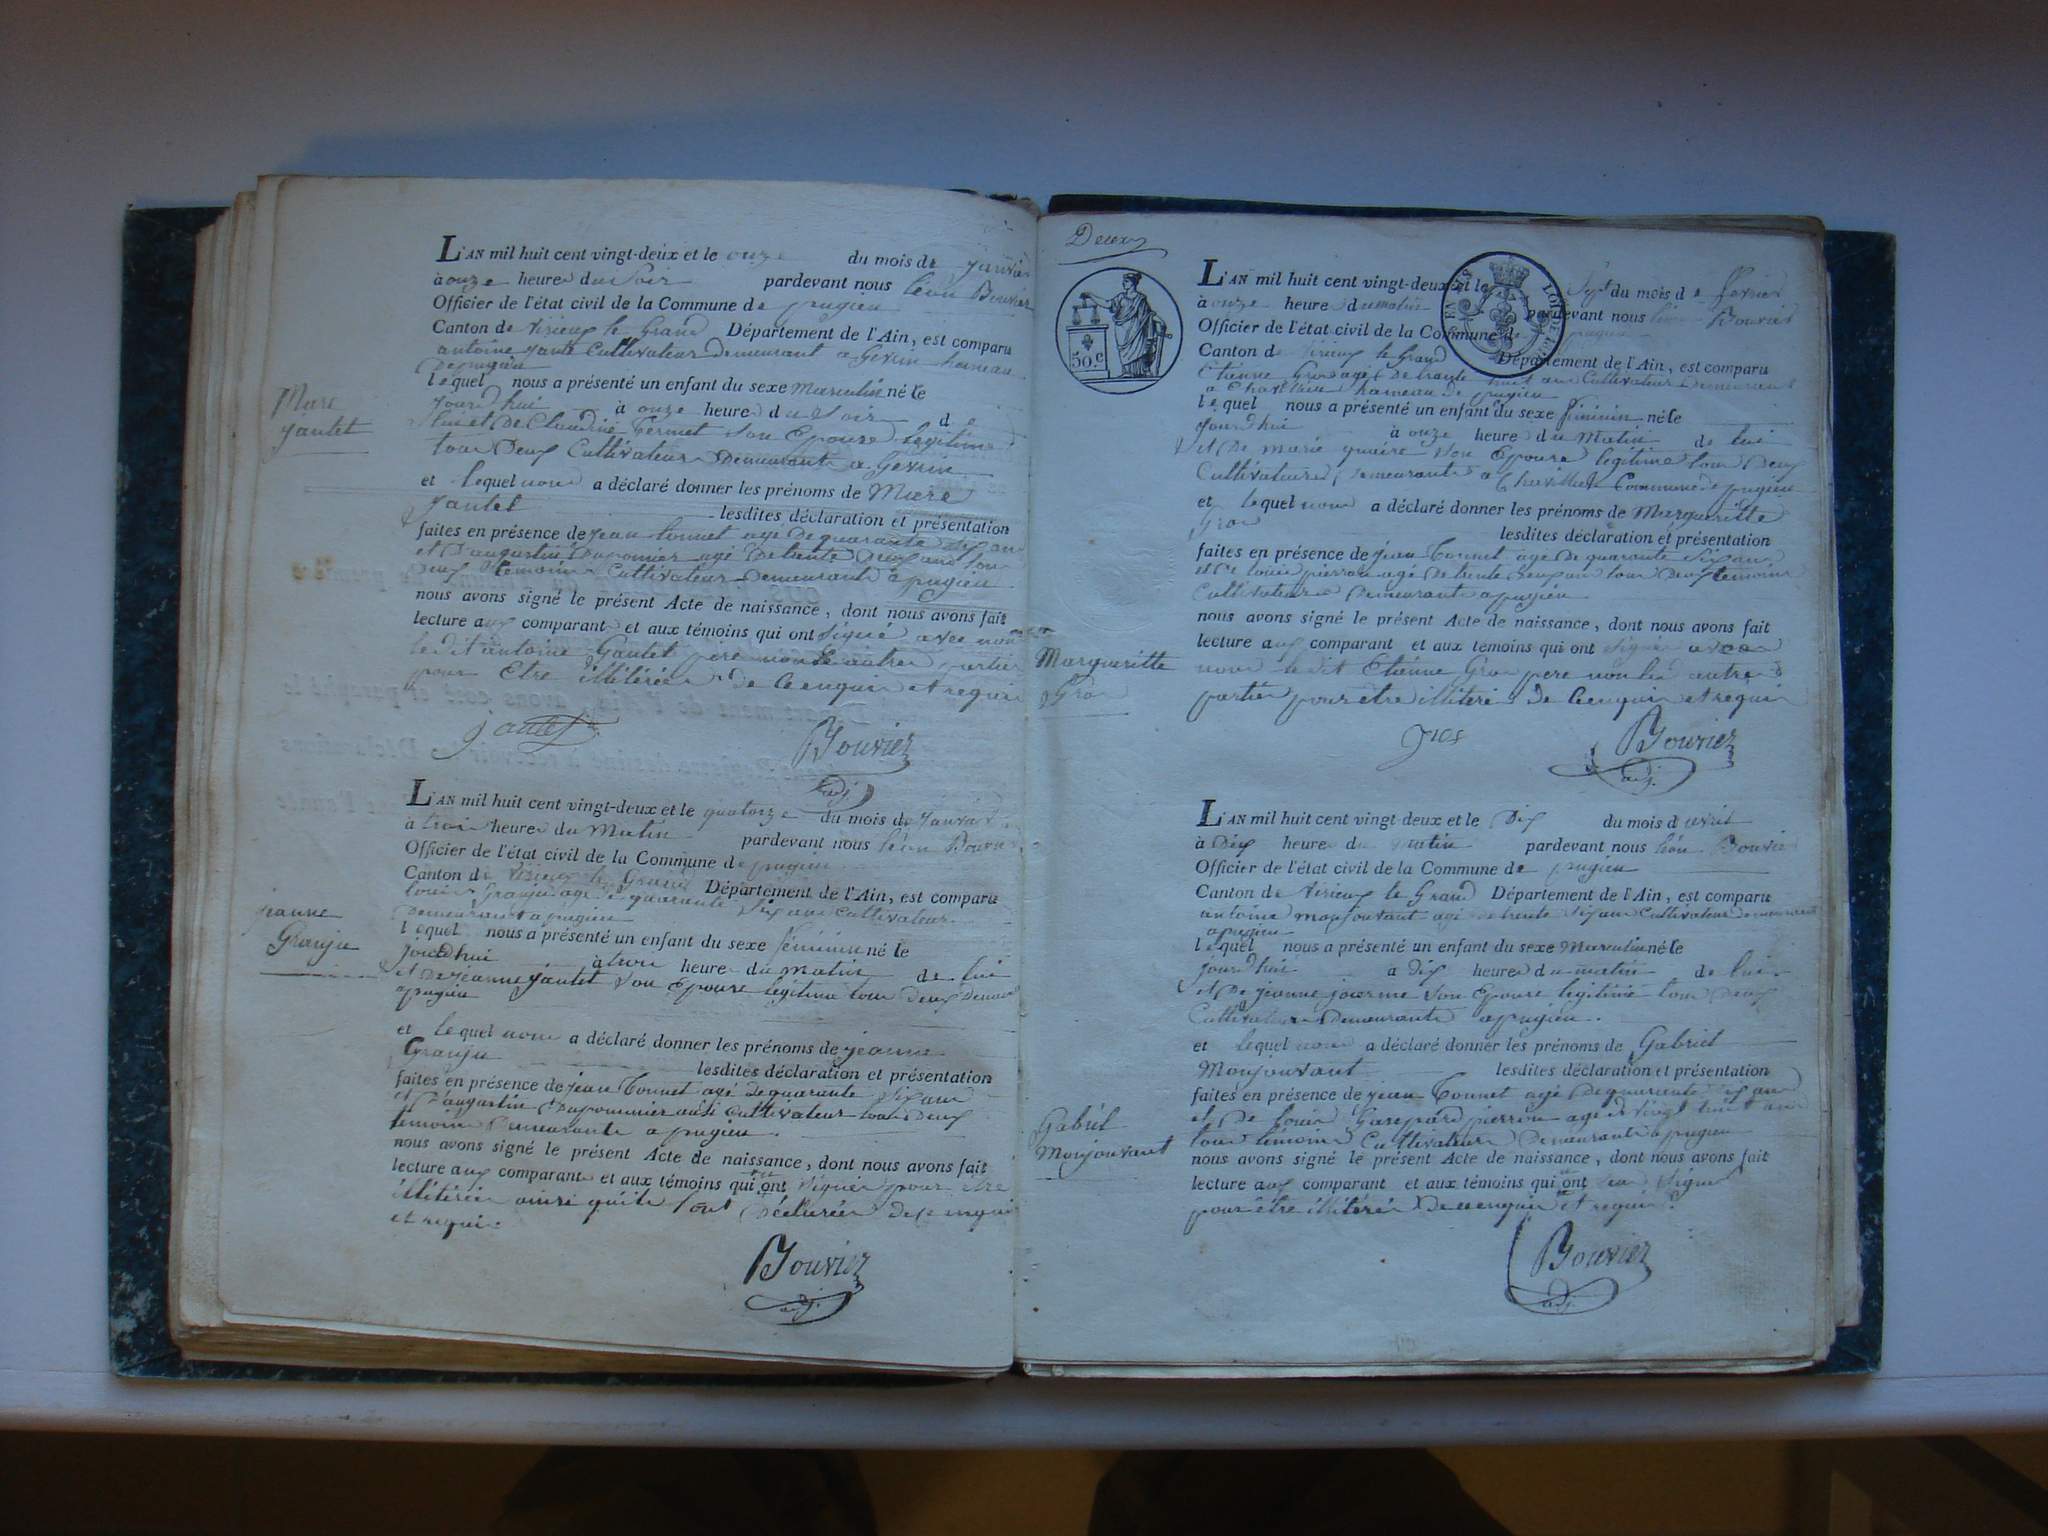 L'AN mil huit cent vingt-deux et le onze du mois de janvier
à onze heures du soir pardevant nous léon Bouvier
Officier de l'état civil de la Commune de pugieu
Canton de virieux le Grand Département de l'Ain, est comparu
antoine jantet Cultivateur Demeurant a Gevrin hameau
De pugieu
lequel nous a présenté un enfant du sexe Masculin né le
jourd'hui à onze heures du soir de
lui et De Claudine Termet son Epouse legitime
tous Deux Cultivateurs Demeurants a Gevrin
et lequel nous a déclaré donner les prénoms de Marc
jantet lesdites déclaration et présentation
faites en présence de jean tonnet agé De quarante six ans
et D'augustin Dupommier agé De trente Deux ans tous
Deux temoins Cultivateurs Demeurants a pugieu
nous avons signé le présent Acte de naissance, dont nous avons fait
lecture aux comparants et aux témoins qui ont signé avec nous
le dit antoine Gantet pere non les autres parties
pour Etre illitérées De Ce enquis et requis
jantet
Bouvier
adj.
Marc
jantet
L'AN mil huit cent vingt-deux et le quatorze du mois de janvier
à trois heures du Matin pardevant nous léon Bouvier
Officier de l'état civil de la Commune de pugieu
Canton de virieux le Grand Département de l'Ain, est comparu
louis Granju agé De quarante six ans Cultivateur
Demeurant a pugieu
lequel nous a présenté un enfant du sexe féminin né le
jourd'hui à trois heures du matin de lui
et De jeanne jantet son Epouse legitime tous deux Demeurants
a pugieu
et lequel nous a déclaré donner les prénoms de jeanne
Granju lesdites déclaration et présentation
faites en présence de jean Tonnet agé De quarante six ans
et D'augustin Dupommier aussi cultivateurs tous Deux
temoins Demeurants a pugieu.
nous avons signé le présent Acte de naissance, dont nous avons fait
lecture aux comparants et aux témoins qui ont signer pour etre
illitérées ainsi quils sont Déclarées de ce enquis
et requis
Bouvier
adj.
jeanne
Granju
Deux
50.c
L'AN mil huit cent vingt-deux et le sept du mois de fevrier
à onze heures du matin pardevant nous léon Bouvier
Officier de l'état civil de la Commune de pugieu
Canton de virieux le Grand Département de l'Ain, est comparu
Etienne Gros agé De trante huit ans Cultivateur Demeurant
a hameau De pugieu
lequel nous a présenté un enfant du sexe féminin né le
jourd'hui à onze heures du Matin de lui
et De marie son Epouse legitime tous Deux
Cultivateurs Demeurants a Commune De pugieu
et lequel nous a déclaré donner les prénoms de Margueritte
Gros lesdites déclaration et présentation
faites en présence de jean Tonnet agé de quarante six ans
et De louis agé De trente deux ans tous Deux temoins
Cultivateurs Demeurants a pugieu
nous avons signé le présent Acte de naissance, dont nous avons fait
lecture aux comparant et aux témoins qui ont signer avec
nous le dit Etienne Gros pere non les autres
parties pour etre illiterés De Ce enquis et requis
gros
Bouvier
adj.
Margueritte
Gros
L'AN mil huit cent vingt-deux et le Dix du mois d'avril
à Dix heures du matin pardevant nous léon Bouvier
Officier de l'état civil de la Commune de pugieu
Canton de virieux le Grand Département de l'Ain, est comparu
antoine monjouvant agé de trente six ans Cultivateur demeurant
a pugieu
lequel nous a présenté un enfant du sexe Masculin né le
jourd'hui à dix heures du matin de lui
et De jeanne son Epouse legitime tous Deux
Cultivateurs Demeurants a pugieu.
et lequel nous a déclaré donner les prénoms de Gabriel
Monjouvant lesdites déclaration et présentation
faites en présence de jean Tonnet agé De quarante six ans
et De louis Gaspard pierron agé de vingt huit ans
tous témoins Cultivateurs Demeurants a pugieu
nous avons signé le présent Acte de naissance, dont nous avons fait
lecture aux comparant et aux témoins qui ont signer
pour être illitérés De ce enquis et requis
Bouvier
adj.
Gabriel
Monjouvant